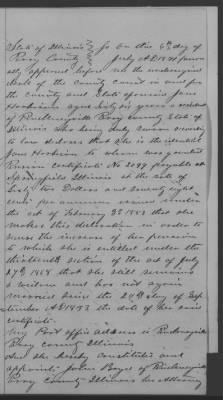 State of Illinois } On this 6th day of
Perry County } July A.D. 1871 person
ally appeared before me the undersigned
Clerk of the county court in and for
the county and State aforesaid Jane
Hoskinson aged sixty six years a resident
of Pinckneyville Perry County State of
Illinois who being duly sworn according
to law declares that she is the identical
Jane Hoskinson to whom was granted
Pension Certificate No 2099 payable at
Springfield Illinois at the rate of
Sixty two Dollars and seventy eight
cents per annum issued under
the act of February 3d 1853 that she
makes this declaration in order to
secure the increase of her pension
to which she is entitled under the
thirteenth section of the act of July
27th 1868 that she still remains
a widow and has not again
married since the 24th day of Sep
tember A.D. 1853 the date of her said
certificate.
My Post office address is Pinckneyville
Perry County Illinois
And she hereby constitutes and
appoints John Boyd of Pinckneyville
Perry County Illinois her Attorney